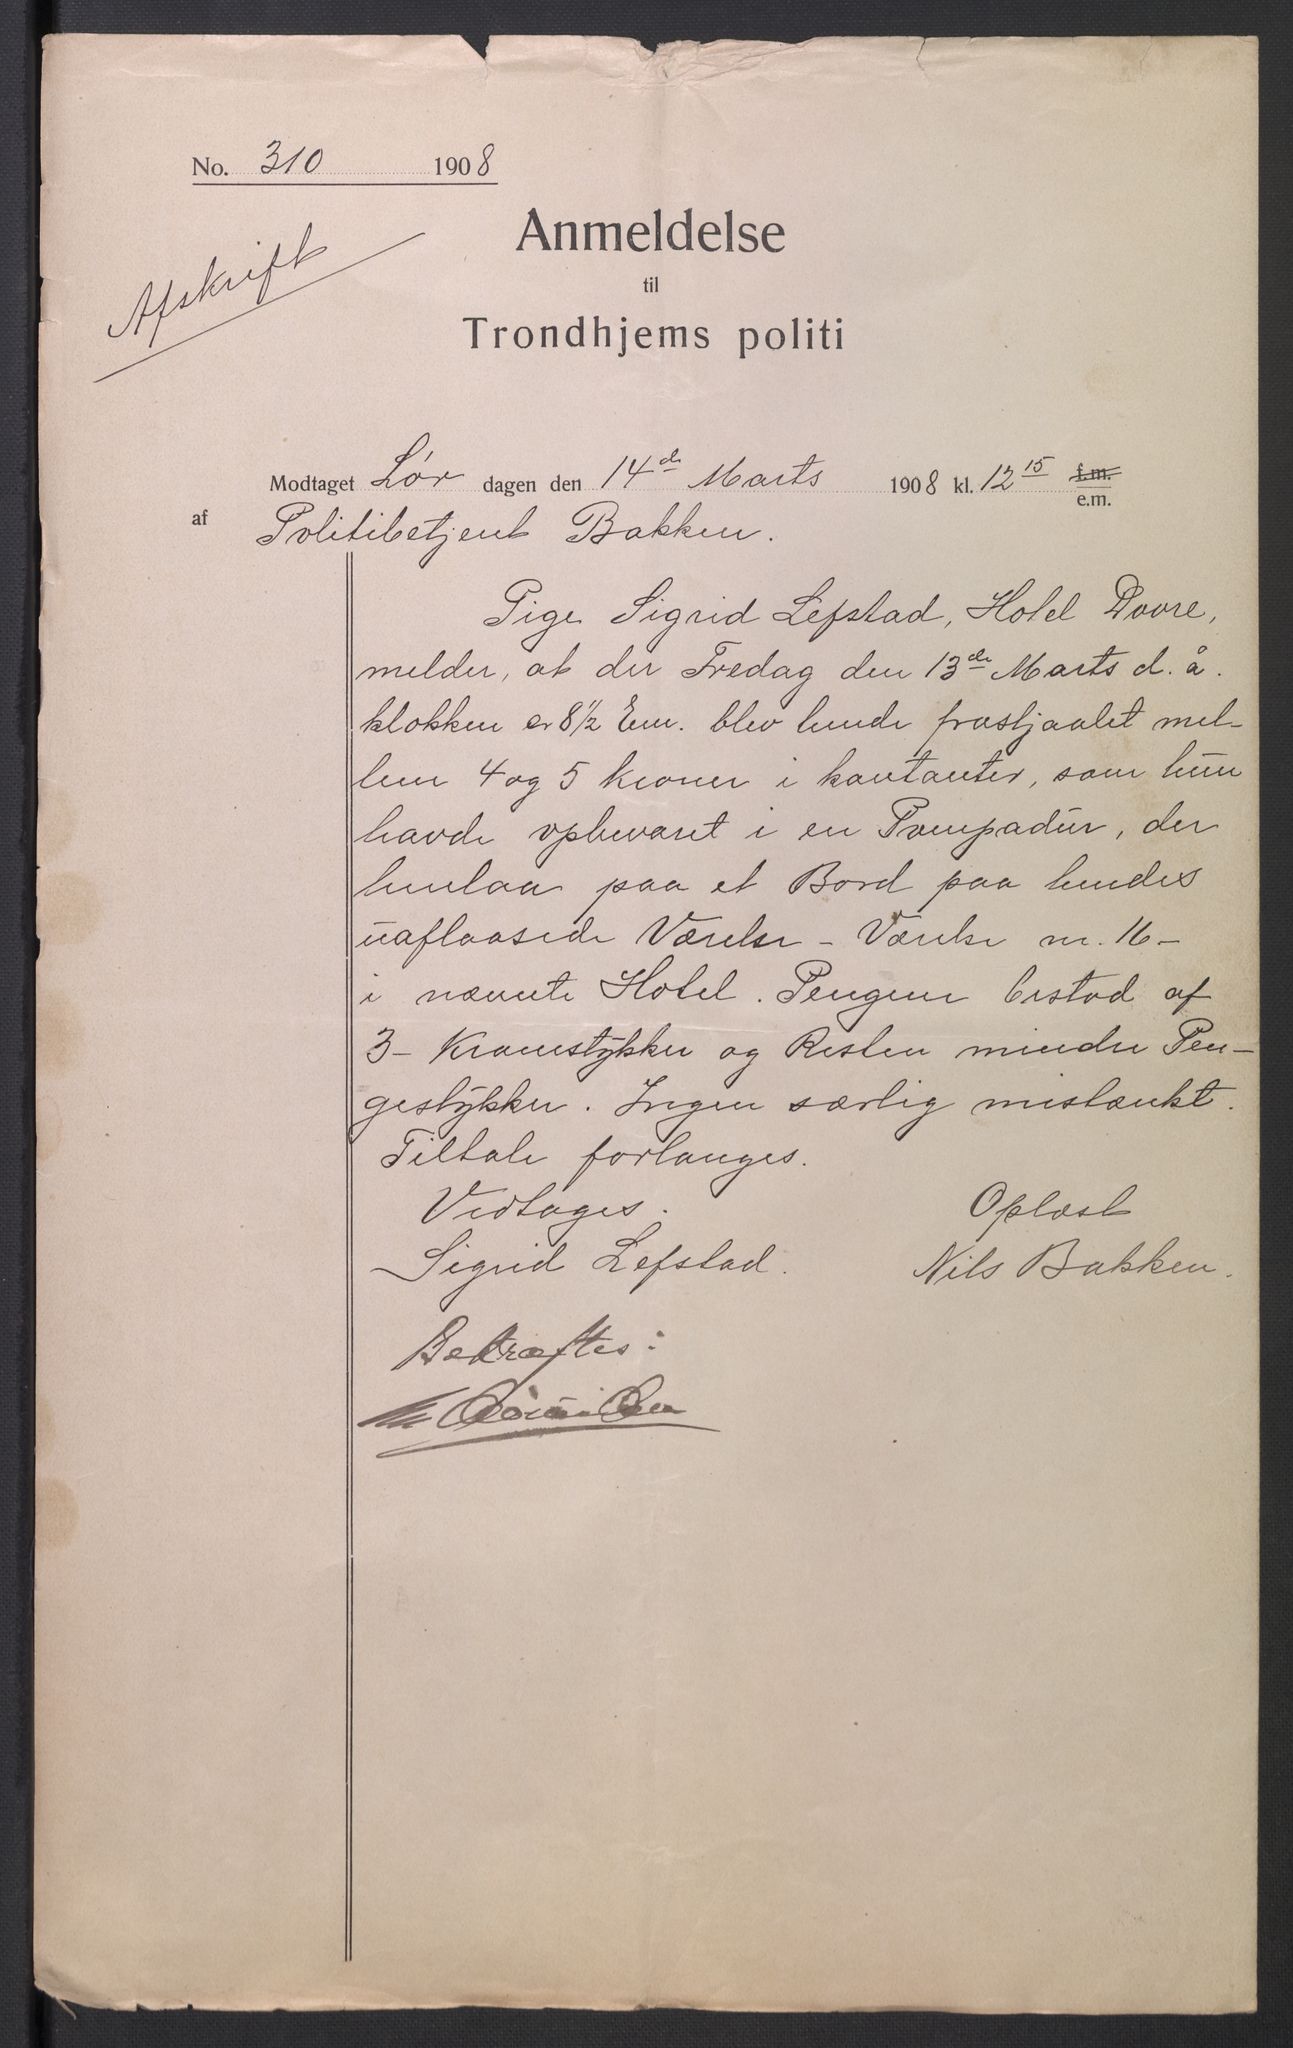 No. 310 1908
Afskrift
Anmeldelse
til
Trondhjems politi
Modtaget Lør dagen den 14de Marts 1908 kl. 12 15 f.m.
e.m.
af Politibetjent Bakken.
Pige Sigrid Lefstad, Hotel Dovre,
melder, at der Fredag den 13de Marts d. å.
klokken er 8 1/2 Em. blev hende frastjaalet mel-
lem 4 og 5 kroner i kontanter, som hun
havde opbevaret i en Pompadur, der
henlaa paa et Bord paa hendes
uaflaasede Værelse - Værelse nr. 16 -
i nævnte Hotel. Pengene bestod af
3 - Kronestykker og Resten mindre Pen-
gestykker. Ingen særlig mistænkt.
Tiltale forlanges.
Vedtages. Oplæst
Sigrid Lefstad. Nils Bakken.
Bekræftes: